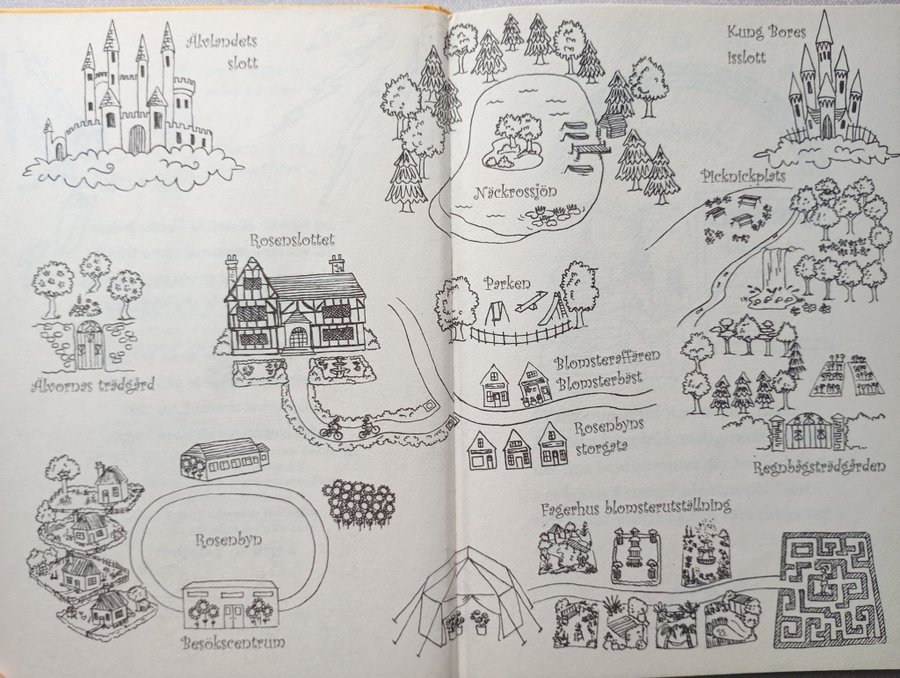 Älvlandets
slott
Kung Bores
isslott
Näckrossjön
Picknickplats
Rosenslottet
Parken
Älvornas trädgård
Blomsteraffären
Blomsterbäst
Rosenbyns
storgata
Regnbågsträdgården
Fagerhus blomsterutställning
Rosenbyn
Besökscentrum